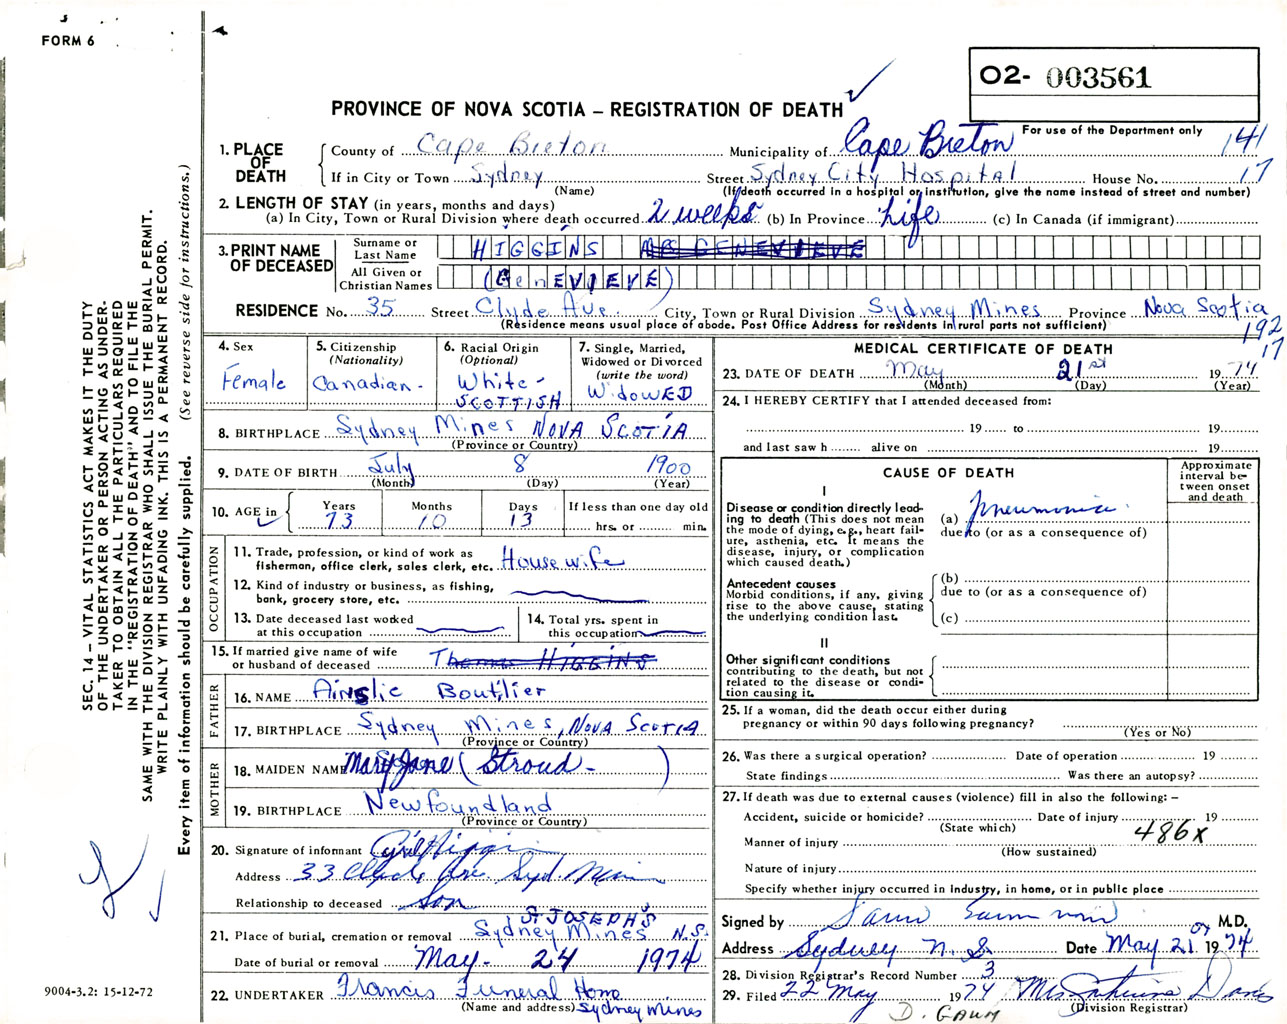 FORM 6
O2- 003561
PROVINCE OF NOVA SCOTIA – REGISTRATION OF DEATH
For use of the Department only
141
17
1. PLACE OF DEATH
County of Cape Breton Municipality of Cape Breton
If in City or Town Sydney Street Sydney City Hospital House No.
(Name) (If death occurred in a hospital or institution, give the name instead of street and number)
2. LENGTH OF STAY (in years, months and days)
(a) In City, Town or Rural Division where death occurred 2 weeks (b) In Province Life (c) In Canada (if immigrant)
3. PRINT NAME OF DECEASED
Surname or Last Name HIGGINS MRS GENEVIEVE
All Given or Christian Names (GenEVIEVE)
RESIDENCE No. 35 Street Clyde Ave. City, Town or Rural Division Sydney Mines Province Nova Scotia
(Residence means usual place of abode. Post Office Address for residents in rural parts not sufficient)
192
17
4. Sex
Female
5. Citizenship (Nationality)
Canadian-
6. Racial Origin (Optional)
White-
SCOTTISH
7. Single, Married, Widowed or Divorced (write the word)
WidowED
8. BIRTHPLACE Sydney Mines NOVA SCOTIA
(Province or Country)
9. DATE OF BIRTH July 8 1900
(Month) (Day) (Year)
10. AGE in
Years 73
Months 10
Days 13
If less than one day old
hrs. or min.
OCCUPATION
11. Trade, profession, or kind of work as fisherman, office clerk, sales clerk, etc. Housewife
12. Kind of industry or business, as fishing, bank, grocery store, etc.
13. Date deceased last worked at this occupation
14. Total yrs. spent in this occupation
15. If married give name of wife or husband of deceased Thomas HIGGINS
FATHER
16. NAME Ainslie Boutilier
17. BIRTHPLACE Sydney Mines, NOVA SCOTIA
(Province or Country)
MOTHER
18. MAIDEN NAME Mary Jane (Stroud-)
19. BIRTHPLACE Newfoundland
(Province or Country)
20. Signature of informant Cyril Higgins
Address 33 Clyde Ave Syd. Mines
Relationship to deceased Son
ST JOSEPH'S
21. Place of burial, cremation or removal Sydney Mines N.S.
Date of burial or removal May- 24 1974
22. UNDERTAKER Francis Funeral Home
(Name and address) Sydney Mines
MEDICAL CERTIFICATE OF DEATH
23. DATE OF DEATH May 21st 1974
(Month) (Day) (Year)
24. I HEREBY CERTIFY that I attended deceased from:
19 to 19
and last saw h alive on 19
CAUSE OF DEATH
Approximate interval between onset and death
I
Disease or condition directly leading to death (This does not mean the mode of dying, e.g., heart failure, asthenia, etc. It means the disease, injury, or complication which caused death.)
(a) Pneumonia
due to (or as a consequence of)
Antecedent causes
Morbid conditions, if any, giving rise to the above cause, stating the underlying condition last.
(b)
due to (or as a consequence of)
(c)
II
Other significant conditions contributing to the death, but not related to the disease or condition causing it.
25. If a woman, did the death occur either during pregnancy or within 90 days following pregnancy?
(Yes or No)
26. Was there a surgical operation? Date of operation 19
State findings Was there an autopsy?
27. If death was due to external causes (violence) fill in also the following: –
Accident, suicide or homicide? Date of injury 19
(State which)
Manner of injury 486x
(How sustained)
Nature of injury
Specify whether injury occurred in Industry, in home, or in public place
Signed by M.D.
Address Sydney N.S. Date May 21 1974
28. Division Registrar's Record Number 3
29. Filed 22 May 1974 Mrs
(Division Registrar)
D. GAUM
SEC. 14 – VITAL STATISTICS ACT MAKES IT THE DUTY
OF THE UNDERTAKER OR PERSON ACTING AS UNDER-
TAKER TO OBTAIN ALL THE PARTICULARS REQUIRED
IN THE "REGISTRATION OF DEATH" AND TO FILE THE
SAME WITH THE DIVISION REGISTRAR WHO SHALL ISSUE THE BURIAL PERMIT.
WRITE PLAINLY WITH UNFADING INK. THIS IS A PERMANENT RECORD.
Every item of information should be carefully supplied. (See reverse side for instructions.)
9004-3.2: 15-12-72